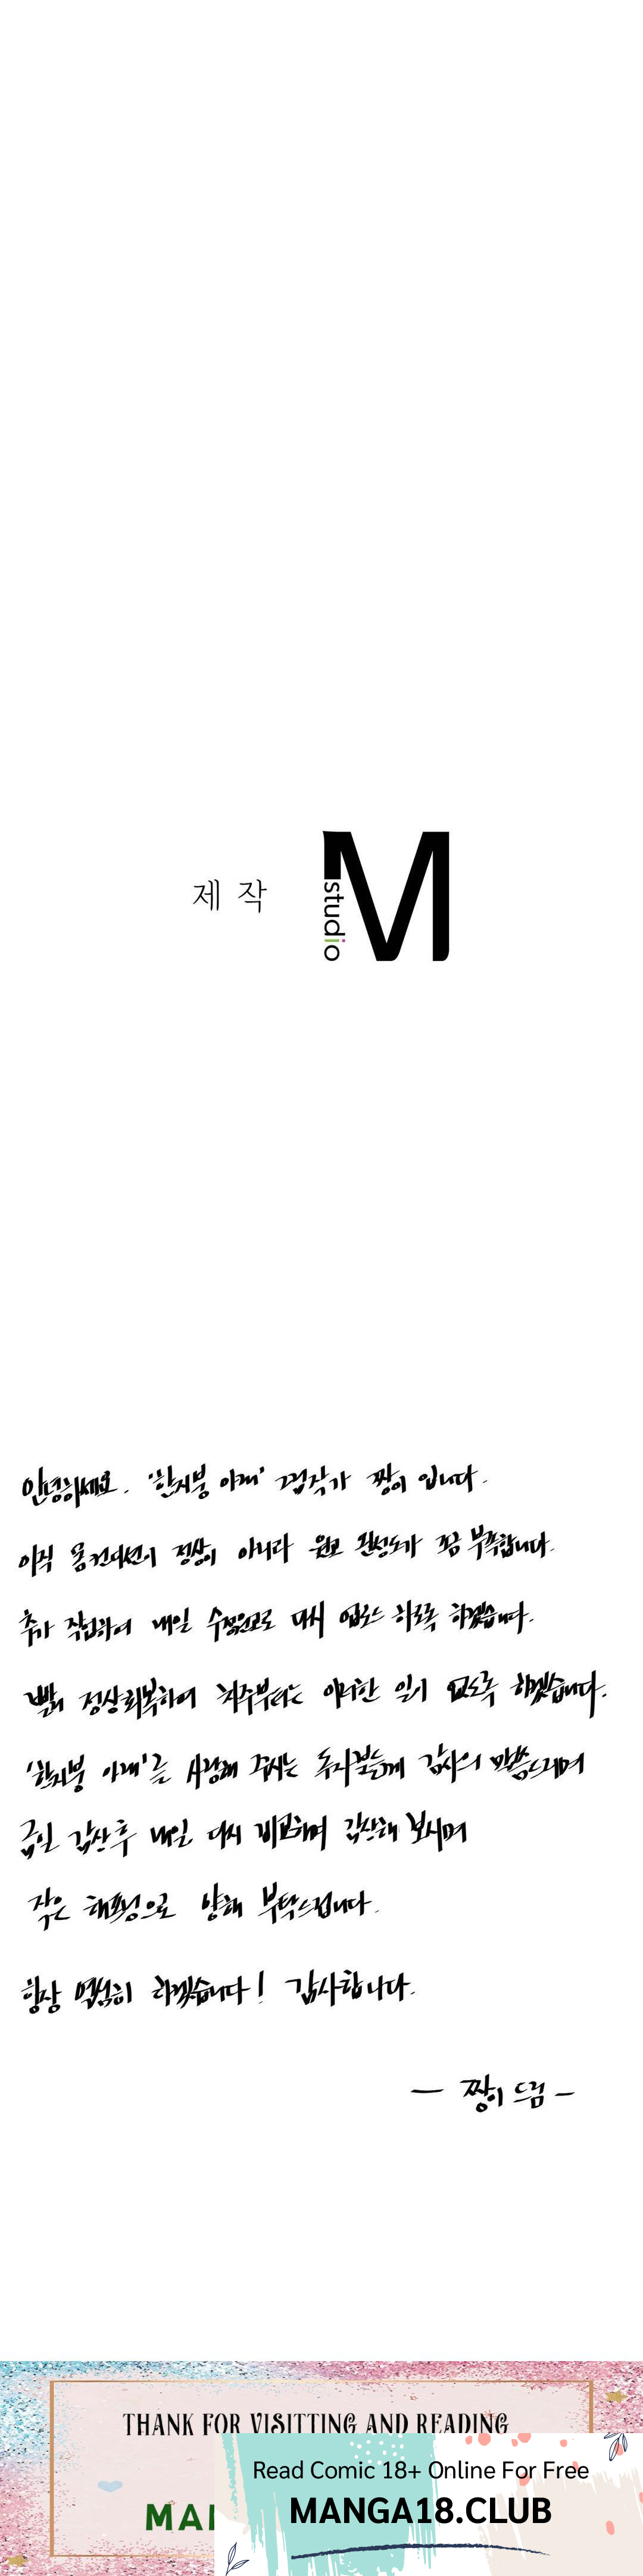 제 작
studio
M
안녕하세요. '한지붕 아래' 그림작가 짱이 입니다.
아직 몸 컨디션이 정상이 아니라 원고 완성도가 조금 부족합니다.
추가 작업하여 내일 수정원고로 다시 업로드 하도록 하겠습니다.
빨리 정상회복하여 차주부터는 이러한 일이 없도록 하겠습니다.
'한지붕 아래'를 사랑해 주시는 독자분들께 감사의 말씀드리며
금일 감상 후 내일 다시 비교하며 감상해 보시며
작은 해프닝으로 양해 부탁드립니다.
항상 열심히 하겠습니다! 감사합니다.
— 짱이 드림 —
THANK FOR VISITTING AND READING
Read Comic 18+ Online For Free
MANGA18.CLUB